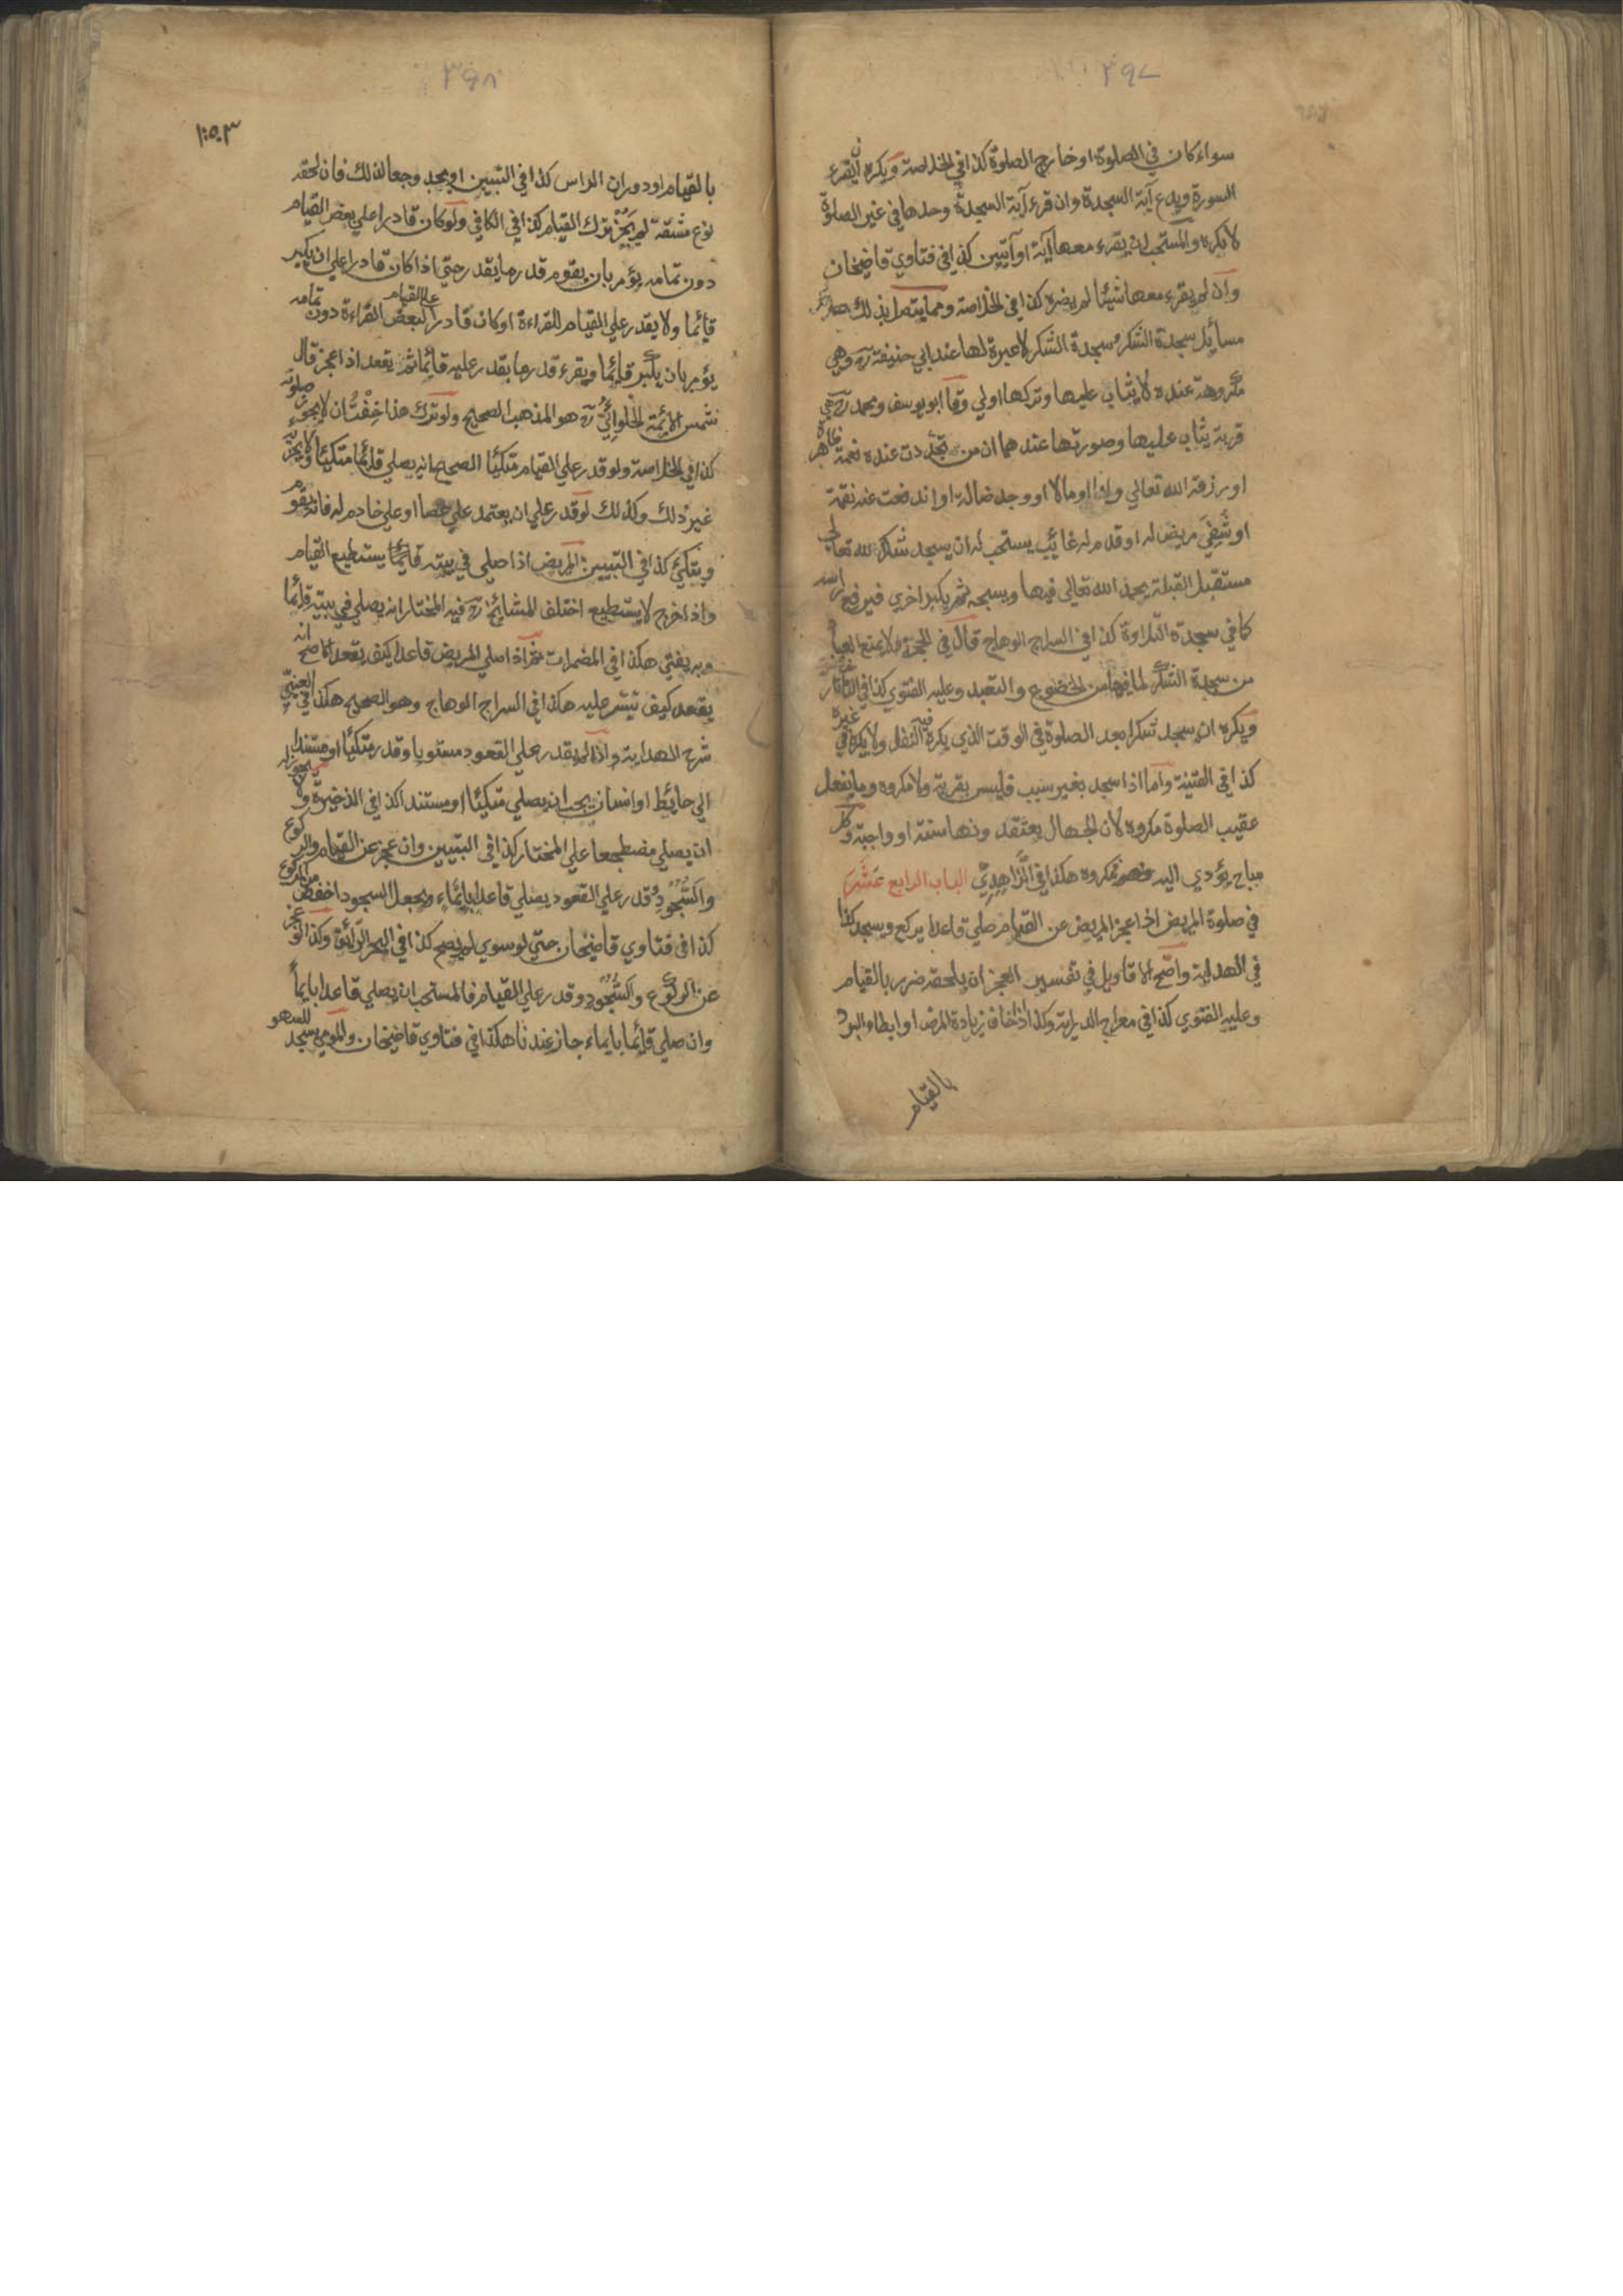 ٣٩٧
سواء كان في الصلوة او خارج الصلوة كذا في الخلاصة ويكره ان يقرء
السورة ويدع آية السجدة وان قرء آية السجدة وحدها في غير الصلوة
لا يكره والمستحب ان يقرء معها آية او آيتين كذا في فتاوي قاضيخان
وان لم يقرء معها شيئا لم يضره كذا في الخلاصة ومما يتصل بذلك
مسائل سجدة الشكر وسجدة الشكر لا عبرة لها عند ابي حنيفة رح وهي
مكروهة عنده لا يثاب عليها وتركها اولي وقال ابو يوسف ومحمد رح هي
قربة يثاب عليها وصورتها عندهما ان من تجددت عنده نعمة ظاهرة
او رزقه الله تعالي ولدا او مالا او وجد ضالة او اندفعت عنه نقمة
او شفي مريض له او قدم له غائب يستحب له ان يسجد شكرا لله تعالي
مستقبل القبلة يحمد الله تعالي فيها ويسبحه ثم يكبر اخري فيرفع راسه
كما في سجدة التلاوة كذا في السراج الوهاج قال في الحجة ولا يمنع العباد
من سجدة الشكر لما فيها من الخضوع والتعبد وعليه الفتوي كذا في التاتارخانية
ويكره ان يسجد شكرا بعد الصلوة في الوقت الذي يكره فيه النفل ولا يكره في غيره
كذا في القنية واما اذا سجد بغير سبب فليس بقربة ولا مكروه وما يفعل
عقيب الصلوة مكروه لان الجهال يعتقدونها سنة او واجبة وكل
مباح يؤدي اليه فهو مكروه هكذا في الزاهدي الباب الرابع عشر
في صلوة المريض اذا عجز المريض عن القيام صلي قاعدا يركع ويسجد كذا
في الهداية واصح الاقاويل في تفسير العجز ان يلحقه ضرر بالقيام
وعليه الفتوي كذا في معراج الدراية وكذا اذا خاف زيادة المرض او ابطاء البرء
بالقيام
٣٩٨
بالقيام او دوران الراس كذا في التبيين او يجد وجعا لذلك فان لحقه
نوع مشقة لم يجز ترك القيام كذا في الكافي ولو كان قادرا علي بعض القيام
دون تمامه يؤمر بان يقوم قدر ما يقدر حتي اذا كان قادرا علي ان يكبر
قائما ولا يقدر علي القيام للقراءة او كان قادرا علي القيام لبعض القراءة دون تمامه
يؤمر بان يكبر قائما ويقرء قدر ما يقدر عليه قائما ثم يقعد اذا عجز قال
شمس الائمة الحلوائي رح هو المذهب الصحيح ولو ترك هذا خفت ان لا يجوز صلوته
كذا في الخلاصة ولو قدر علي القيام متكيا الصحيح انه يصلي قائما متكيا ولا يجزيه
غير ذلك وكذلك لو قدر علي ان يعتمد علي عصا او علي خادم له فانه يقوم
ويتكئ كذا في التبيين المريض اذا صلي في بيته قائما يستطيع القيام
واذا خرج لا يستطيع اختلف المشايخ رح فيه المختار انه يصلي في بيته قائما
وبه يفتي هكذا في المضمرات ثم اذا صلي المريض قاعدا كيف يقعد الاصح انه
يقعد كيف تيسر عليه هكذا في السراج الوهاج وهو الصحيح هكذا في العيني
شرح الهداية واذا لم يقدر علي القعود مستويا وقدر متكئا او مستندا
الي حائط او انسان يجب ان يصلي متكئا او مستندا كذا في الذخيرة ولا يجوز له
ان يصلي مضطجعا علي المختار كذا في التبيين وان عجز عن القيام والركوع
والسجود وقدر علي القعود يصلي قاعدا بايماء ويجعل السجود اخفض من الركوع
كذا في فتاوي قاضيخان حتي لو سوي لم يصح كذا في البحر الرائق وكذا لو عجز
عن الركوع والسجود وقدر علي القيام فالمستحب ان يصلي قاعدا بايماء
وان صلي قائما بايماء جاز عندنا هكذا في فتاوي قاضيخان والمومي يسجد للسهو